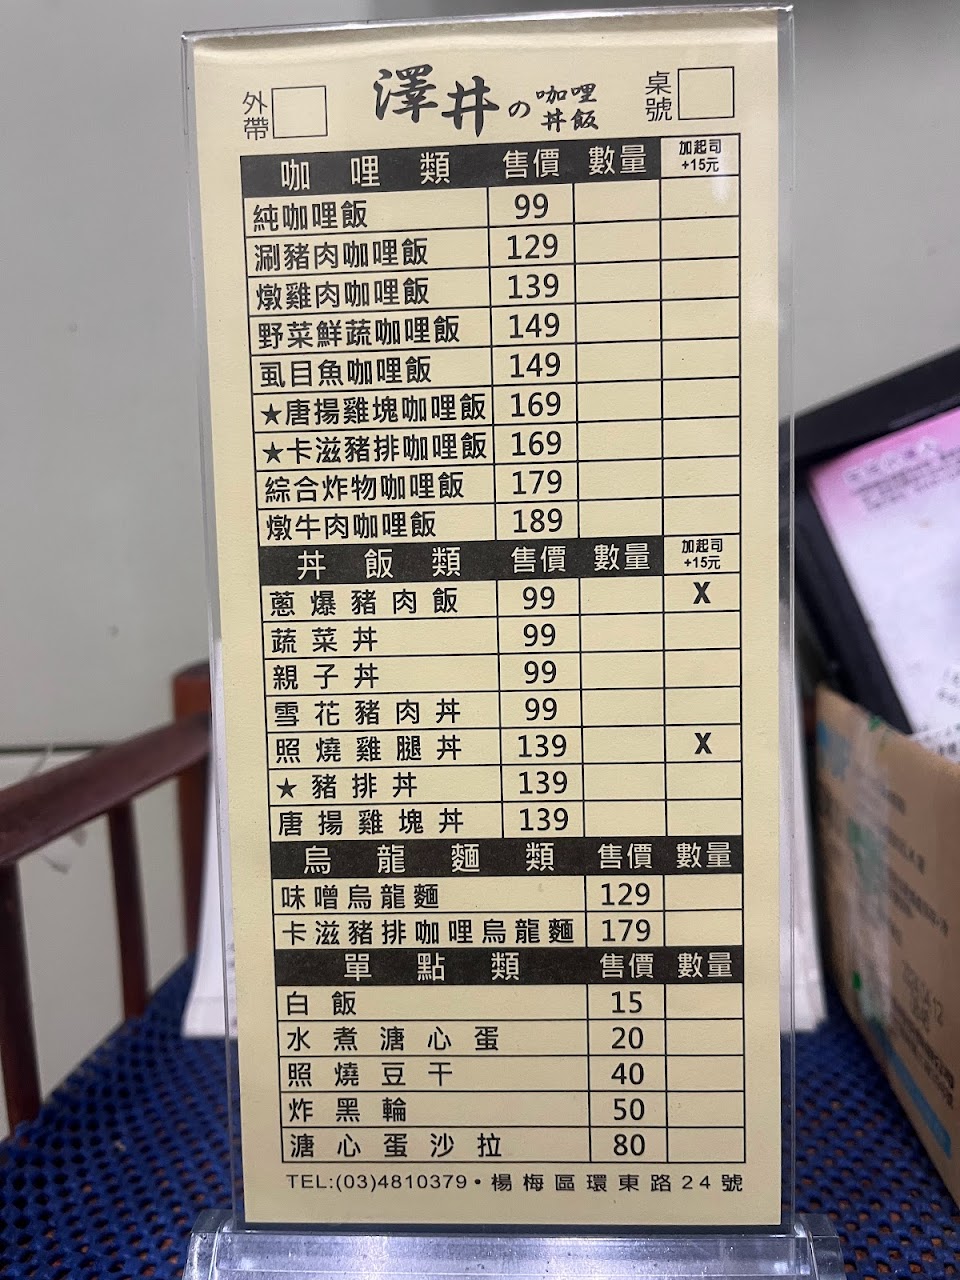 外帶 澤井の咖哩丼飯 桌號
咖哩類 售價 數量 加起司+15元
純咖哩飯 99
涮豬肉咖哩飯 129
燉雞肉咖哩飯 139
野菜鮮蔬咖哩飯 149
虱目魚咖哩飯 149
★唐揚雞塊咖哩飯 169
★卡滋豬排咖哩飯 169
綜合炸物咖哩飯 179
燉牛肉咖哩飯 189
丼飯類 售價 數量 加起司+15元
蔥爆豬肉飯 99 X
蔬菜丼 99
親子丼 99
雪花豬肉丼 99
照燒雞腿丼 139 X
★豬排丼 139
唐揚雞塊丼 139
烏龍麵類 售價 數量
味噌烏龍麵 129
卡滋豬排咖哩烏龍麵 179
單點類 售價 數量
白飯 15
水煮溏心蛋 20
照燒豆干 40
炸黑輪 50
溏心蛋沙拉 80
TEL:(03)4810379•楊梅區環東路24號